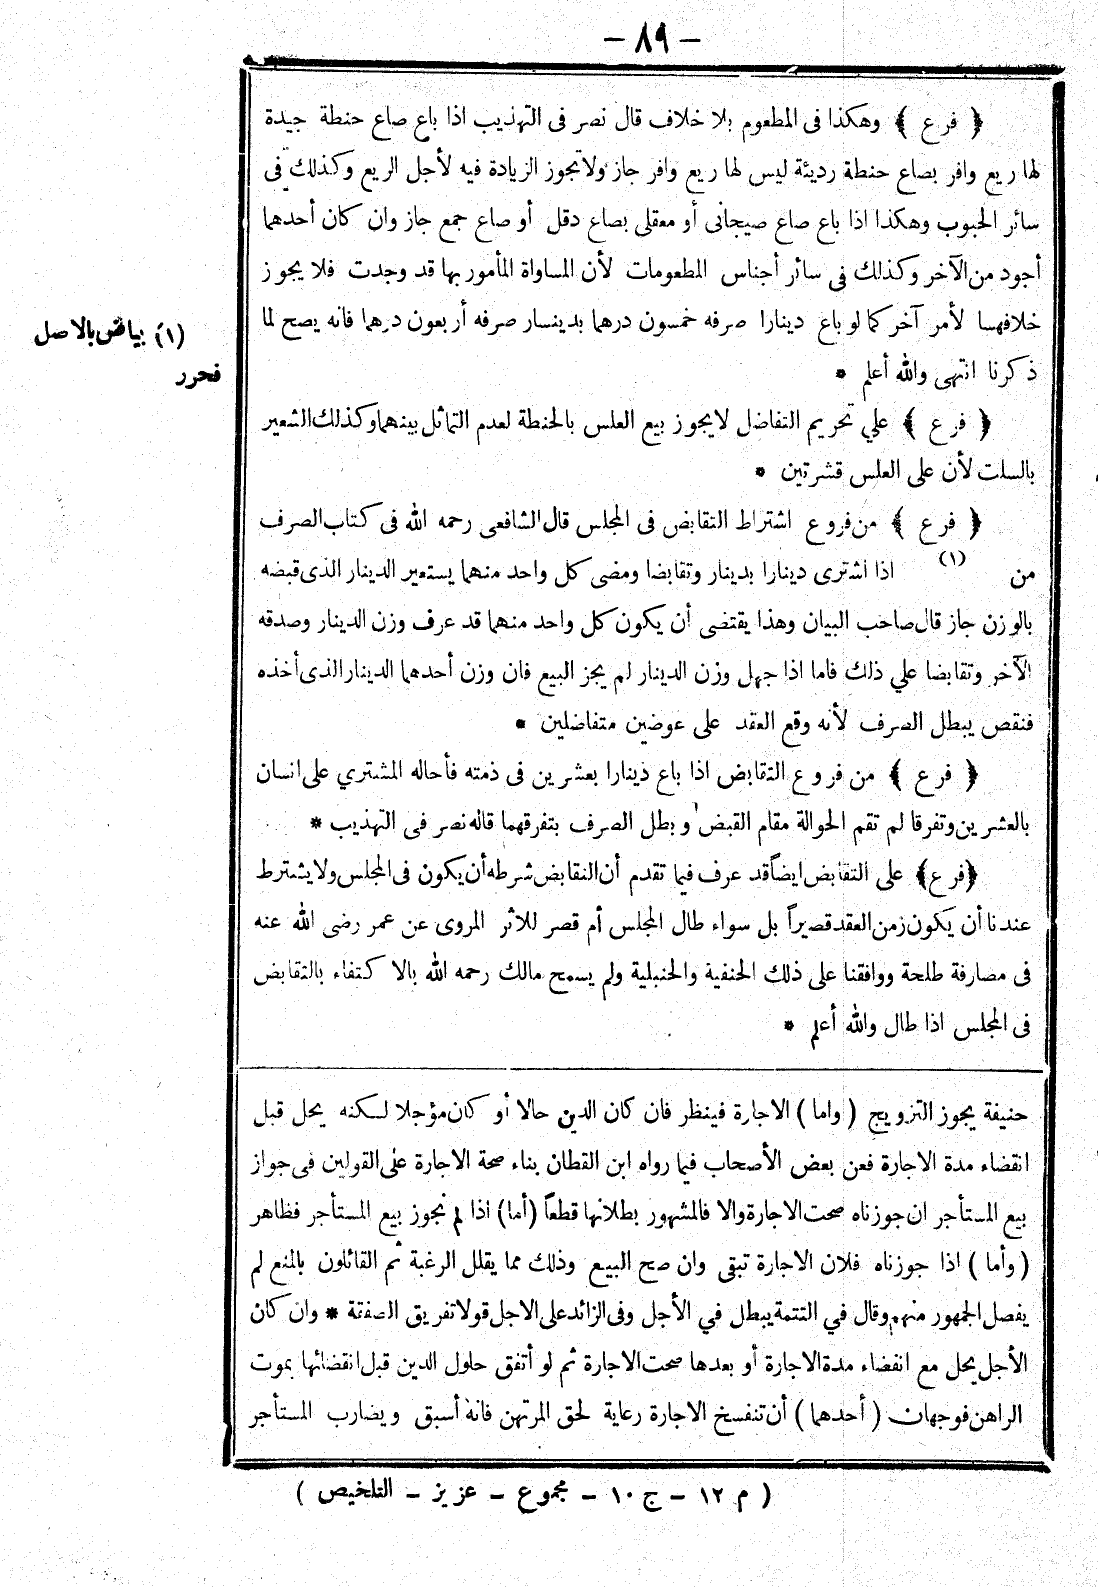 — ٨٩ —
﴿ فرع ﴾ وهكذا فى المطعوم بلا خلاف قال نصر فى التهذيب اذا باع صاع حنطة جيدة
لها ريع وافر بصاع حنطة رديئة ليس لها ريع وافر جاز ولا تجوز الزيادة فيه لأجل الريع وكذلك فى
سائر الحبوب وهكذا اذا باع صاع صيحانى أو معقلى بصاع دقل أو صاع جمع جاز وان كان أحدهما
أجود من الآخر وكذلك فى سائر أجناس المطعومات لأن المساواة المأمور بها قد وجدت فلا يجوز
خلافهسا لأمر آخر كما لو باع دينارا صرفه خمسون درهما بدينسار صرفه أربعون درهما فانه يصح لما
ذكرنا انتهى والله أعلم *
﴿ فرع ﴾ علي تحريم التفاضل لا يجوز بيع العلس بالحنطة لعدم التماثل بينهما وكذلك الشعير
بالسلت لأن على العلس قشرتين *
﴿ فرع ﴾ من فروع اشتراط التقابض فى المجلس قال الشافعى رحمه الله فى كتاب الصرف
من (١) اذا اشترى دينارا بدينار وتقابضا ومضى كل واحد منهما يستعير الدينار الذى قبضه
بالوزن جاز قال صاحب البيان وهذا يقتضى أن يكون كل واحد منهما قد عرف وزن الدينار وصدقه
الآخر وتقابضا علي ذلك فاما اذا جهل وزن الدينار لم يجز البيع فان وزن أحدهما الدينار الذى أخذه
فنقص يبطل الصرف لأنه وقع العقد على عوضين متفاضلين *
﴿ فرع ﴾ من فروع التقابض اذا باع دينارا بعشرين فى ذمته فأحاله المشتري على انسان
بالعشرين وتفرقا لم تقم الحوالة مقام القبض وبطل الصرف بتفرقهما قاله نصر فى التهذيب *
﴿فرع﴾ على التقابض ايضاً قد عرف فيما تقدم أن التقابض شرطه أن يكون فى المجلس ولا يشترط
عندنا أن يكون زمن العقد قصيراً بل سواء طال المجلس أم قصر للأثر المروى عن عمر رضى الله عنه
فى مصارفة طلحة ووافقنا على ذلك الحنفية والحنبلية ولم يسمح مالك رحمه الله بالاكتفاء بالتقابض
فى المجلس اذا طال والله أعلم *
(١) بياض بالاصل
فحرر
حنيفة يجوز التزويج ( واما ) الاجارة فينظر فان كان الدين حالا أو كان مؤجلا لـكنه يحل قبل
انقضاء مدة الاجارة فعن بعض الأصحاب فيما رواه ابن القطان بناء صحة الاجارة على القولين فى جواز
بيع المستأجر ان جوزناه صحت الاجارة والا فالمشهور بطلانها قطعاً (أما) اذا لم نجوز بيع المستأجر فظاهر
( وأما ) اذا جوزناه فلان الاجارة تبقى وان صح البيع وذلك مما يقلل الرغبة ثم القائلون بالمنع لم
يفصل الجمهور منهم وقال في التتمة يبطل في الأجل وفى الزائد على الاجل قولا تفريق الصفقة * وان كان
الأجل يحل مع انقضاء مدة الاجارة أو بعدها صحت الاجارة ثم لو أتفق حلول الدين قبل انقضائها بموت
الراهن فوجهان ( أحدهما ) أن تنفسخ الاجارة رعاية لحق المرتهن فانه أسبق ويضارب المستأجر
( م ١٢ – ج ١٠ – مجموع – عزيز – التلخيص )